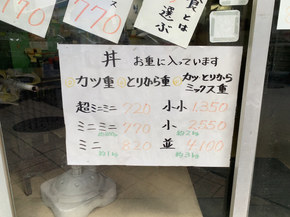 770
ス
食とは
選ぶ
770
丼 お重に入っています
カツ重 とりから重 カツとりからミックス重
超ミニミニ 720 小小 1,350
ミニミニ 770 小 2550
約2kg
ミニ 820 並 4400
約1kg 約3kg